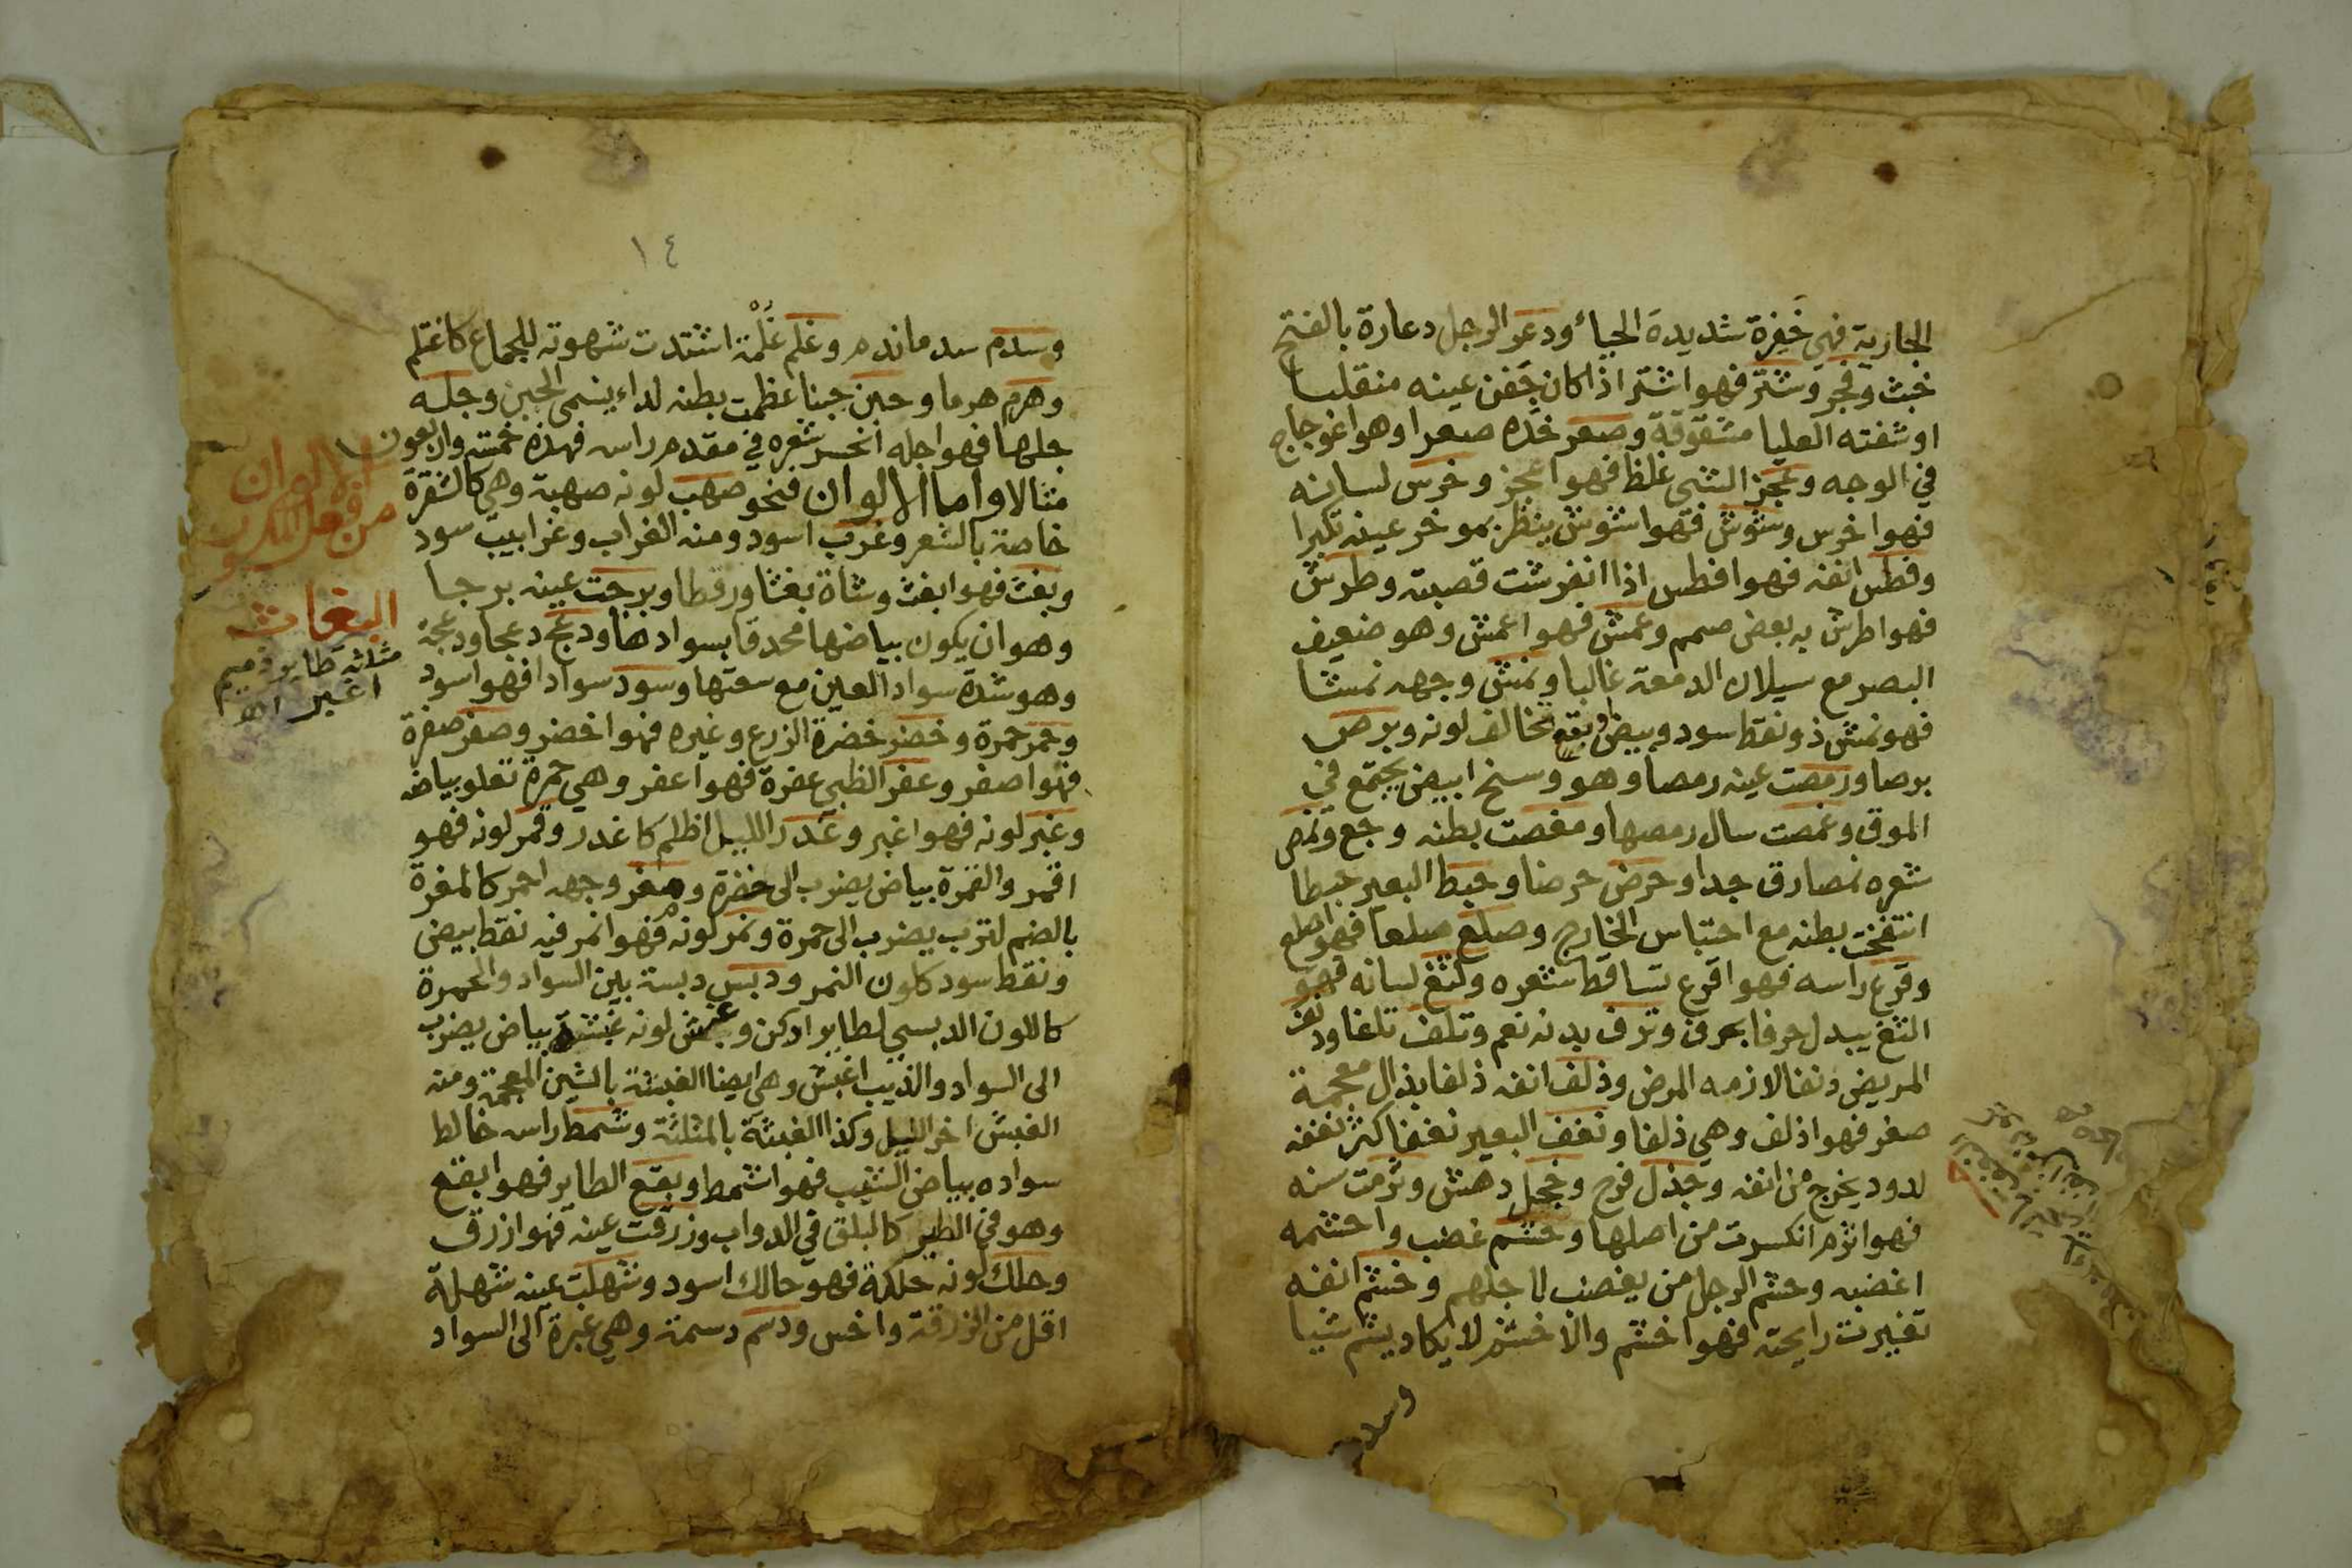 الجارية فهي خَفِرَة شديدة الحياء ودعر الرجل دعارة بالفتح
خبث وفجر وشتر فهو اشتر اذا كان جَفن عينه منقلبا
او شفته العليا مشقوقة وصعر خده صعرا وهو اعوجاج
في الوجه وعجز الشي غلظ فهو اعجز وخرس لسانه
فهو اخرس وشوش فهو اشوش ينظر بموخر عينه تكبرا
وفطس انفه فهو افطس اذا انفرشت قصبته وطرش
فهو اطرش به بعض صمم وعمش فهو اعمش وهو ضعيف
البصر مع سيلان الدمعة غالبا ونمش وجهه نمشا
فهو نمش ذو نقط سود وبيض او بقع تخالف لونه وبرص
برصا ورمصت عينه رمصا وهو وسخ ابيض يجتمع في
الموق وغمصت سال رمصها ومغصت بطنه وجع ونمص
شعره نمصا رق جدا وحرض حرضا وحبط البعير حبطا
انتفخت بطنه مع احتباس الخارج وصلع صلعا فهو اصلع
وقرع راسه فهو اقرع تساقط شعره ولثغ لسانه فهو
الثغ يبدل حرفا بحرف وترف بدنه نعم وتلف تلفا ودنف
المريض دنفا لازمه المرض وذلف انفه ذلفا بذال معجمة
صغر فهو اذلف وهي ذلفا ونغف البعير نغفا كثر نغفه
لدود يخرج من انفه وجذل فرح وخجل دهش وثرمت سنه
فهو اثرم انكسرت من اصلها وحشم غضب واحشمه
اغضبه وحشم الرجل من يغضب لاجلهم وخشم انفه
تغيرت رايحته فهو اخشم والاخشم لا يكاد يشم شيا
وسدم
١٤
وسدم سدما ندم وغلم غُلْمَة اشتدت شهوته للجماع كاغتلم
وهرم هرما وحبن حبنا عظمت بطنه لداء يسمى الحبن وجله
جلها فهو اجله انحسر شعره في مقدم راسه فهذه خمسة واربعون
مثالا واما الالوان فنحو صهب لونه صهبة وهي كالشقرة
خاصة بالشعر وغرب اسود ومنه الغراب وغرابيب سود
وبغث فهو ابغث وشاة بغثا ورقطا وبرجت عينه برجا
وهو ان يكون بياضها محدقا بسوادها ودعج دعجا ودعجة
وهو شدة سواد العين مع سعتها وسود سوادا فهو اسود
وحمر حمرة وخضر خضرة الزرع وغيره فهو اخضر وصفر صفرة
فهو اصفر وعفر الظبي عفرة فهو اعفر وهي حمرة تعلو بياضه
وغبر لونه فهو اغبر وغدر الليل اظلم كاغدر وقمر لونه فهو
اقمر والقمرة بياض يضرب الى خضرة ومغر وجهه احمر كالمغرة
بالضم لترب يضرب الى حمرة ونمر لونه فهو انمر فيه نقط بيض
ونقط سود كلون النمر ودبس دبسة بين السواد والحمرة
كاللون الدبسي لطاير ادكن وغبش لونه غبشة بياض يضرب
الى السواد والذيب اغبش وهي ايضا الغبشة بالشين المعجمة ومنه
الغبش اخر الليل وكذا الغبثة بالمثلثة وشمط راسه خالط
سواده بياض الشيب فهو اشمط وبقع الطاير فهو ابقع
وهو في الطير كالبلق في الدواب وزرقت عينه فهو ازرق
وحلك لونه حلكة فهو حالك اسود وشهلت عينه شهلة
اقل من الزرقة واخس ودسم دسمة وهي غبرة الى السواد
الالوان
من فعل المكسور
البغاث
مثلثة طاير
اغبر اهـ